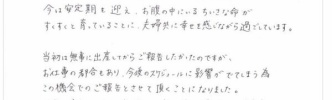 今は安定期を迎え、お腹の中にいるちいさな命が
すくすくと育っていることに、夫婦共に幸せを感じながら過ごしています。
当初は無事に出産してからご報告したかったのですが、
お仕事の都合もあり、今後のスケジュールに影響がでてしまう為
この機会でのご報告とさせて頂くことになりました。